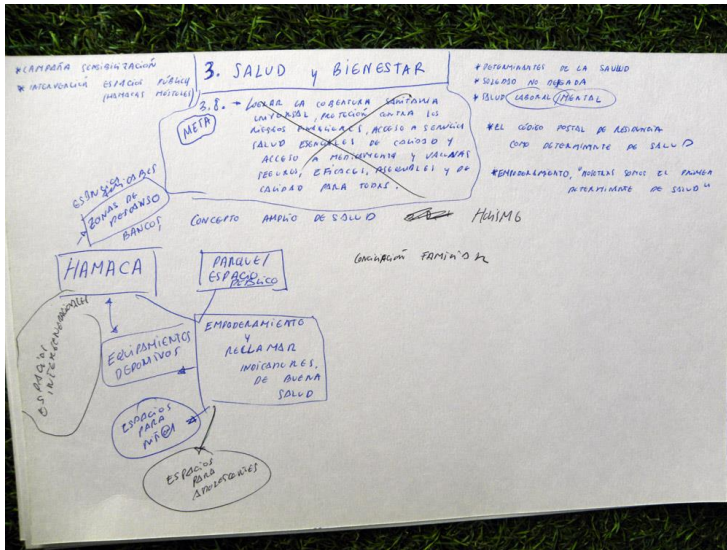 * CAMPAÑA SENSIBILIZACIÓN
* INTERVENCIÓN ESPACIO PÚBLICO
(HAMACAS MÓVILES)
3. SALUD y BIENESTAR
3.8. → LOGRAR LA COBERTURA SANITARIA
META
UNIVERSAL, PROTECCIÓN CONTRA LOS
RIESGOS FINANCIEROS, ACCESO A SERVICIOS
SALUD ESENCIALES DE CALIDAD Y
ACCESO A MEDICAMENTOS Y VACUNAS
SEGUROS, EFICACES, ASEQUIBLES Y DE
CALIDAD PARA TODAS.
* DETERMINANTES DE LA SALUD
* SOLEDAD NO DESEADA
* SALUD LABORAL / MENTAL
* EL CÓDIGO POSTAL DE RESIDENCIA
COMO DETERMINANTE DE SALUD
* EMPODERAMIENTO, "NOSOTRAS SOMOS EL PRIMER
DETERMINANTE DE SALUD"
ESPACIOS AMIGABLES
ZONAS DE
DESCANSO
BANCOS,
CONCEPTO AMPLIO DE SALUD
CONCILIACIÓN FAMILIAR
HAMACA
PARQUE/
ESPACIO
PÚBLICO
ESPACIOS
INTERGENERACIONALES
EQUIPAMIENTOS
DEPORTIVOS
EMPODERAMIENTO
Y
RECLAMAR
INDICADORES,
DE BUENA
SALUD
ESPACIOS
PARA
NIÑ@S
ESPACIOS
PARA
ADOLESCENTES